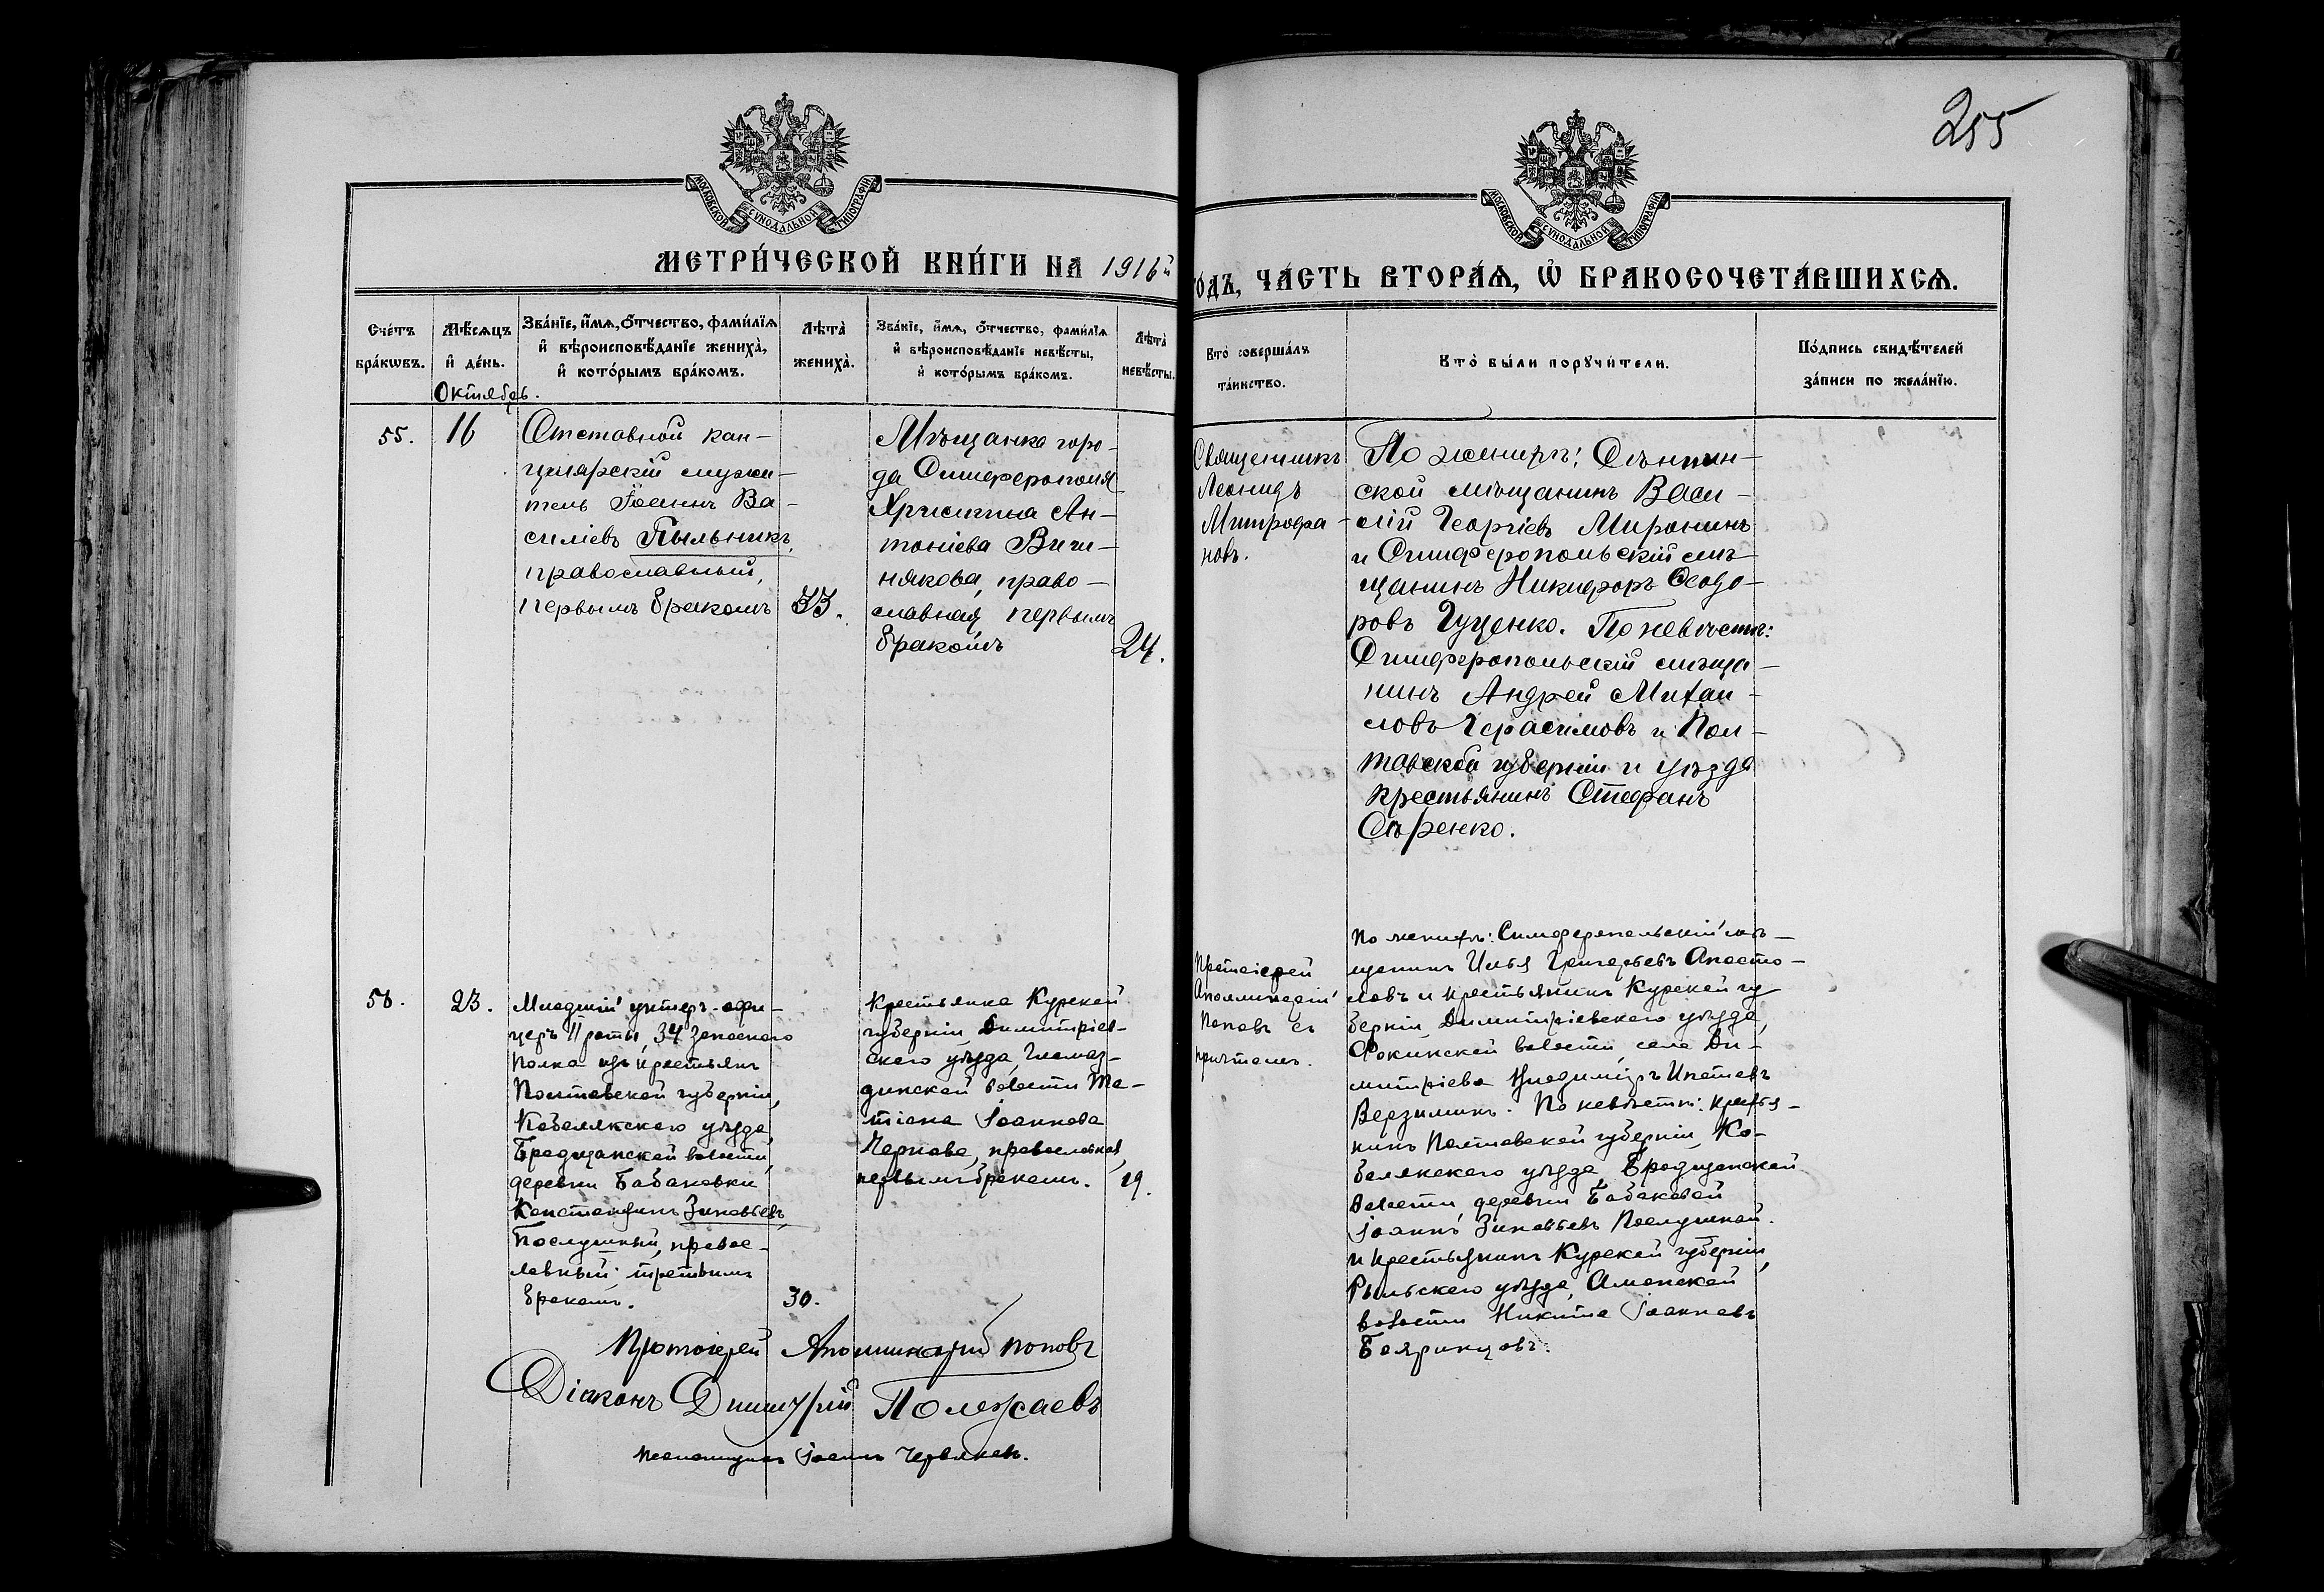 255
МОСКОВСКОЙ СѴНОДАЛЬНОЙ ТИПОГРАФІИ
МОСКОВСКОЙ СѴНОДАЛЬНОЙ ТИПОГРАФІИ
МЕТРИ́ЧЕСКОЙ КНИ́ГИ НА 1916й
ГОДЪ, ЧА́СТЬ ВТОРА́Ѧ, Ѡ БРАКОСОЧЕТА́ВШИХСѦ.
Сче́тъ
бра́кѡвъ.
Мѣ́сѧцъ
и҆ де́нь.
Октябрь.
Зва́нїе, и҆́мѧ, ѻ҆́тчество, фами́лїѧ
и҆ вѣроисповѣ́данїе жениха̀,
и҆ кото́рымъ бра́комъ.
Лѣта̀
жениха̀.
Зва́нїе, и҆́мѧ, ѻ҆́тчество, фами́лїѧ
и҆ вѣроисповѣ́данїе невѣ́сты,
и҆ кото́рымъ бра́комъ.
Лѣта̀
невѣ́сты.
Кто̀ соверша́лъ
та́инство.
Кто̀ бы́ли порꙋчи́тели.
По́дпись свидѣ́телей
за́писи по жела́нїю.
55.
16
Отставной кан-
целярскій служи-
тель Іоаннъ Ва-
силіевъ Пыльникъ,
православный,
первымъ бракомъ
33.
Мѣщанка горо-
да Симферополя
Христина Ан-
тоніева Вичи-
някова, право-
славная, первымъ
бракомъ
24.
Священникъ
Леонидъ
Митрофа-
новъ.
По женихѣ:
ской мѣщанинъ Васи-
лій Георгіевъ Миронинъ
и Симферопольскій мѣ-
щанинъ Никифоръ Ѳеодо-
ровъ Гуценко. По невѣстѣ:
Симферопольскій мѣща-
нинъ Андрей Михаи-
ловъ Герасимовъ и Пол-
тавской губерніи и уѣзда
крестьянинъ Стефанъ
Сѣренко.
56.
23.
Младшій унтеръ-офи-
церъ 11 роты, 34 запаснаго
полка изъ крестьянъ
Полтавской губерніи,
Кобелякскаго уѣзда,
Бродщанской волости,
деревни Бабаковки
Константинъ Зиновьевъ
Послушный, правос-
лавный, третьимъ
бракомъ.
30.
Крестьянка Курской
губерніи, Димитріев-
скаго уѣзда,
волости Та-
тіана Іоаннова
Чернова, православная,
первымъ бракомъ.
19.
Протоіерей
Аполлинарій
Поповъ съ
причтомъ.
По женихѣ: Симферопольскій мѣ-
щанинъ Илья Григорьевъ Апосто-
ловъ и крестьянинъ Курской гу-
берніи Димитріевскаго уѣзда,
Фокинской волости, села Ди-
митріева Владиміръ Ипатовъ
Верзилинъ. По невѣстѣ: крестья-
нинъ Полтавской губерніи, Ко-
белякскаго уѣзда, Бродщанской
волости, деревни Бабаковой
Іоаннъ Зиновьевъ Послушной
и крестьянинъ Курской губерніи,
Рыльскаго уѣзда, Амонской
волости Никита Іоанновъ
Бояринцовъ.
Протоіерей Аполлинарій Поповъ
Діаконъ Димитрій Полежаевъ
Псаломщикъ Іоаннъ Червяковъ.